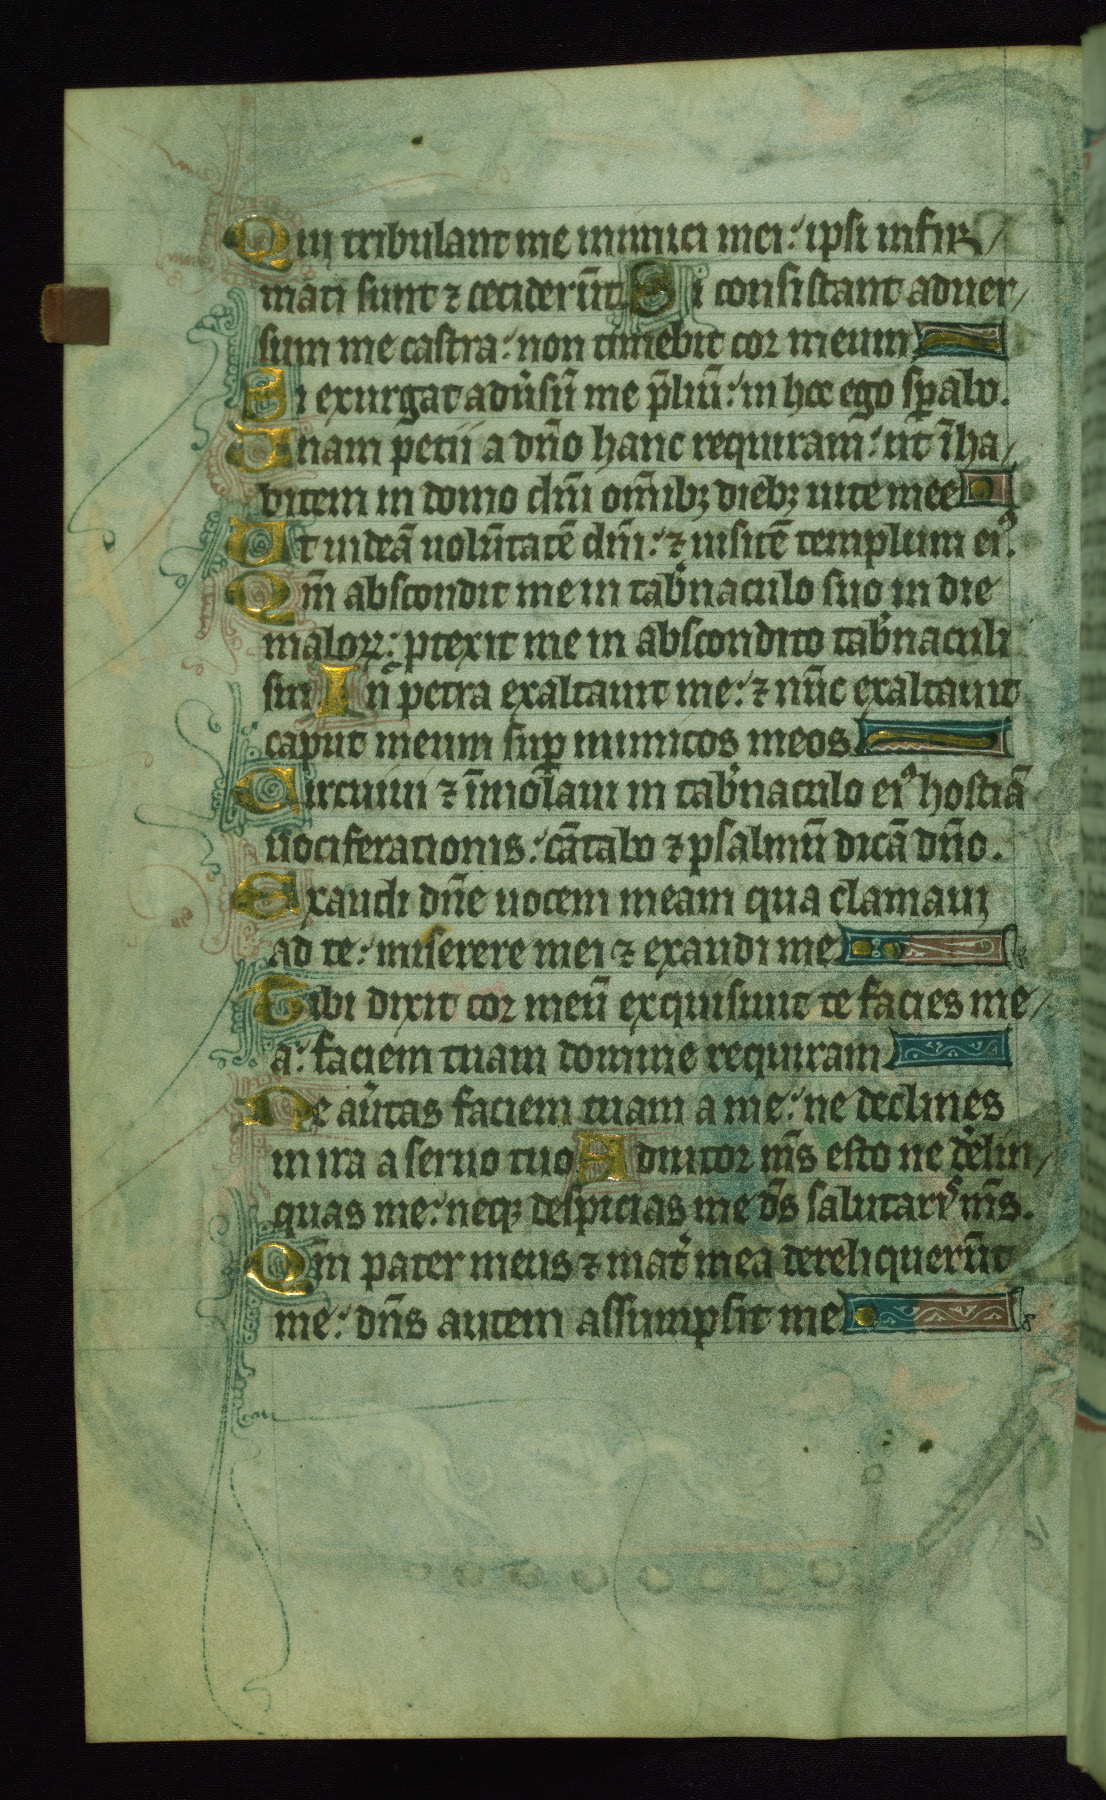 Qui tribulant me inimici mei: ipsi infir/
mati sunt ⁊ ceciderūt Si consistant aduer/
sum me castra: non timebit cor meum
Si exurgat adu̾sū me p̄liū: in hoc ego sꝑabo.
Unam petii a dn̄o hanc requiram: ut īha/
bitem in domo dn̄i om̄ibꝫ diebꝫ uite mee
Ut uideā uolūtatē dn̄i: ⁊ uisitē templum eiꝰ.
Qm̄ abscondit me in tab̾naculo suo in die
maloꝝ: ꝓtexit me in abscondito tab̾naculi
sui In petra exaltauit me: ⁊ nūc exaltauit
caput meum suꝑ inimicos meos
Circuiui ⁊ īmolaui in tab̾naculo eiꝰ hostiā
uociferationis: cātabo ⁊ psalmū dicā dn̄o.
Exaudi dn̄e uocem meam qua clamaui
ad te: miserere mei ⁊ exaudi me
Tibi dixit cor meū exquisiuit te facies me/
a: faciem tuam domine requiram
Ne au̾tas faciem tuam a me: ne declines
in ira a seruo tuo Adiutor m̄s esto ne d̾elin/
quas me: neqꝫ despicias me d̄s salutaris m̄s.
Qm̄ pater meus ⁊ mat̾ mea dereliquerūt
me: dn̄s autem assumpsit me